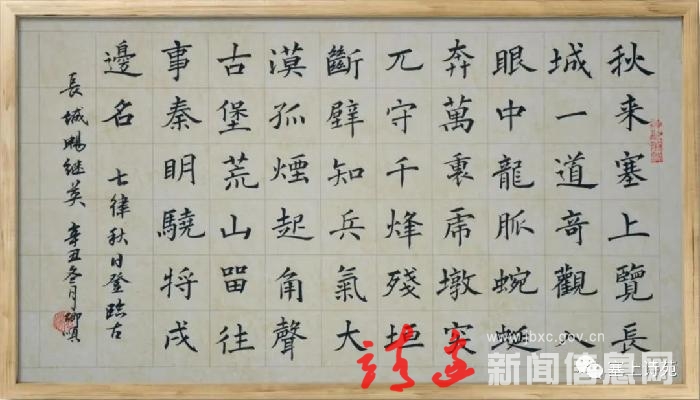 秋来塞上覽長
城一道奇觀入
眼中龍脈蜿蜒
奔萬裏虎墩突
兀守千烽殘垣
斷壁知兵氣大
漠孤煙起角聲
古堡荒山留往
事秦明驍将戍
邊名 七律秋日登臨古
長城 继英 辛丑冬月
www.jbxc.gov.cn
靖边 新闻信息网
塞上诗苑